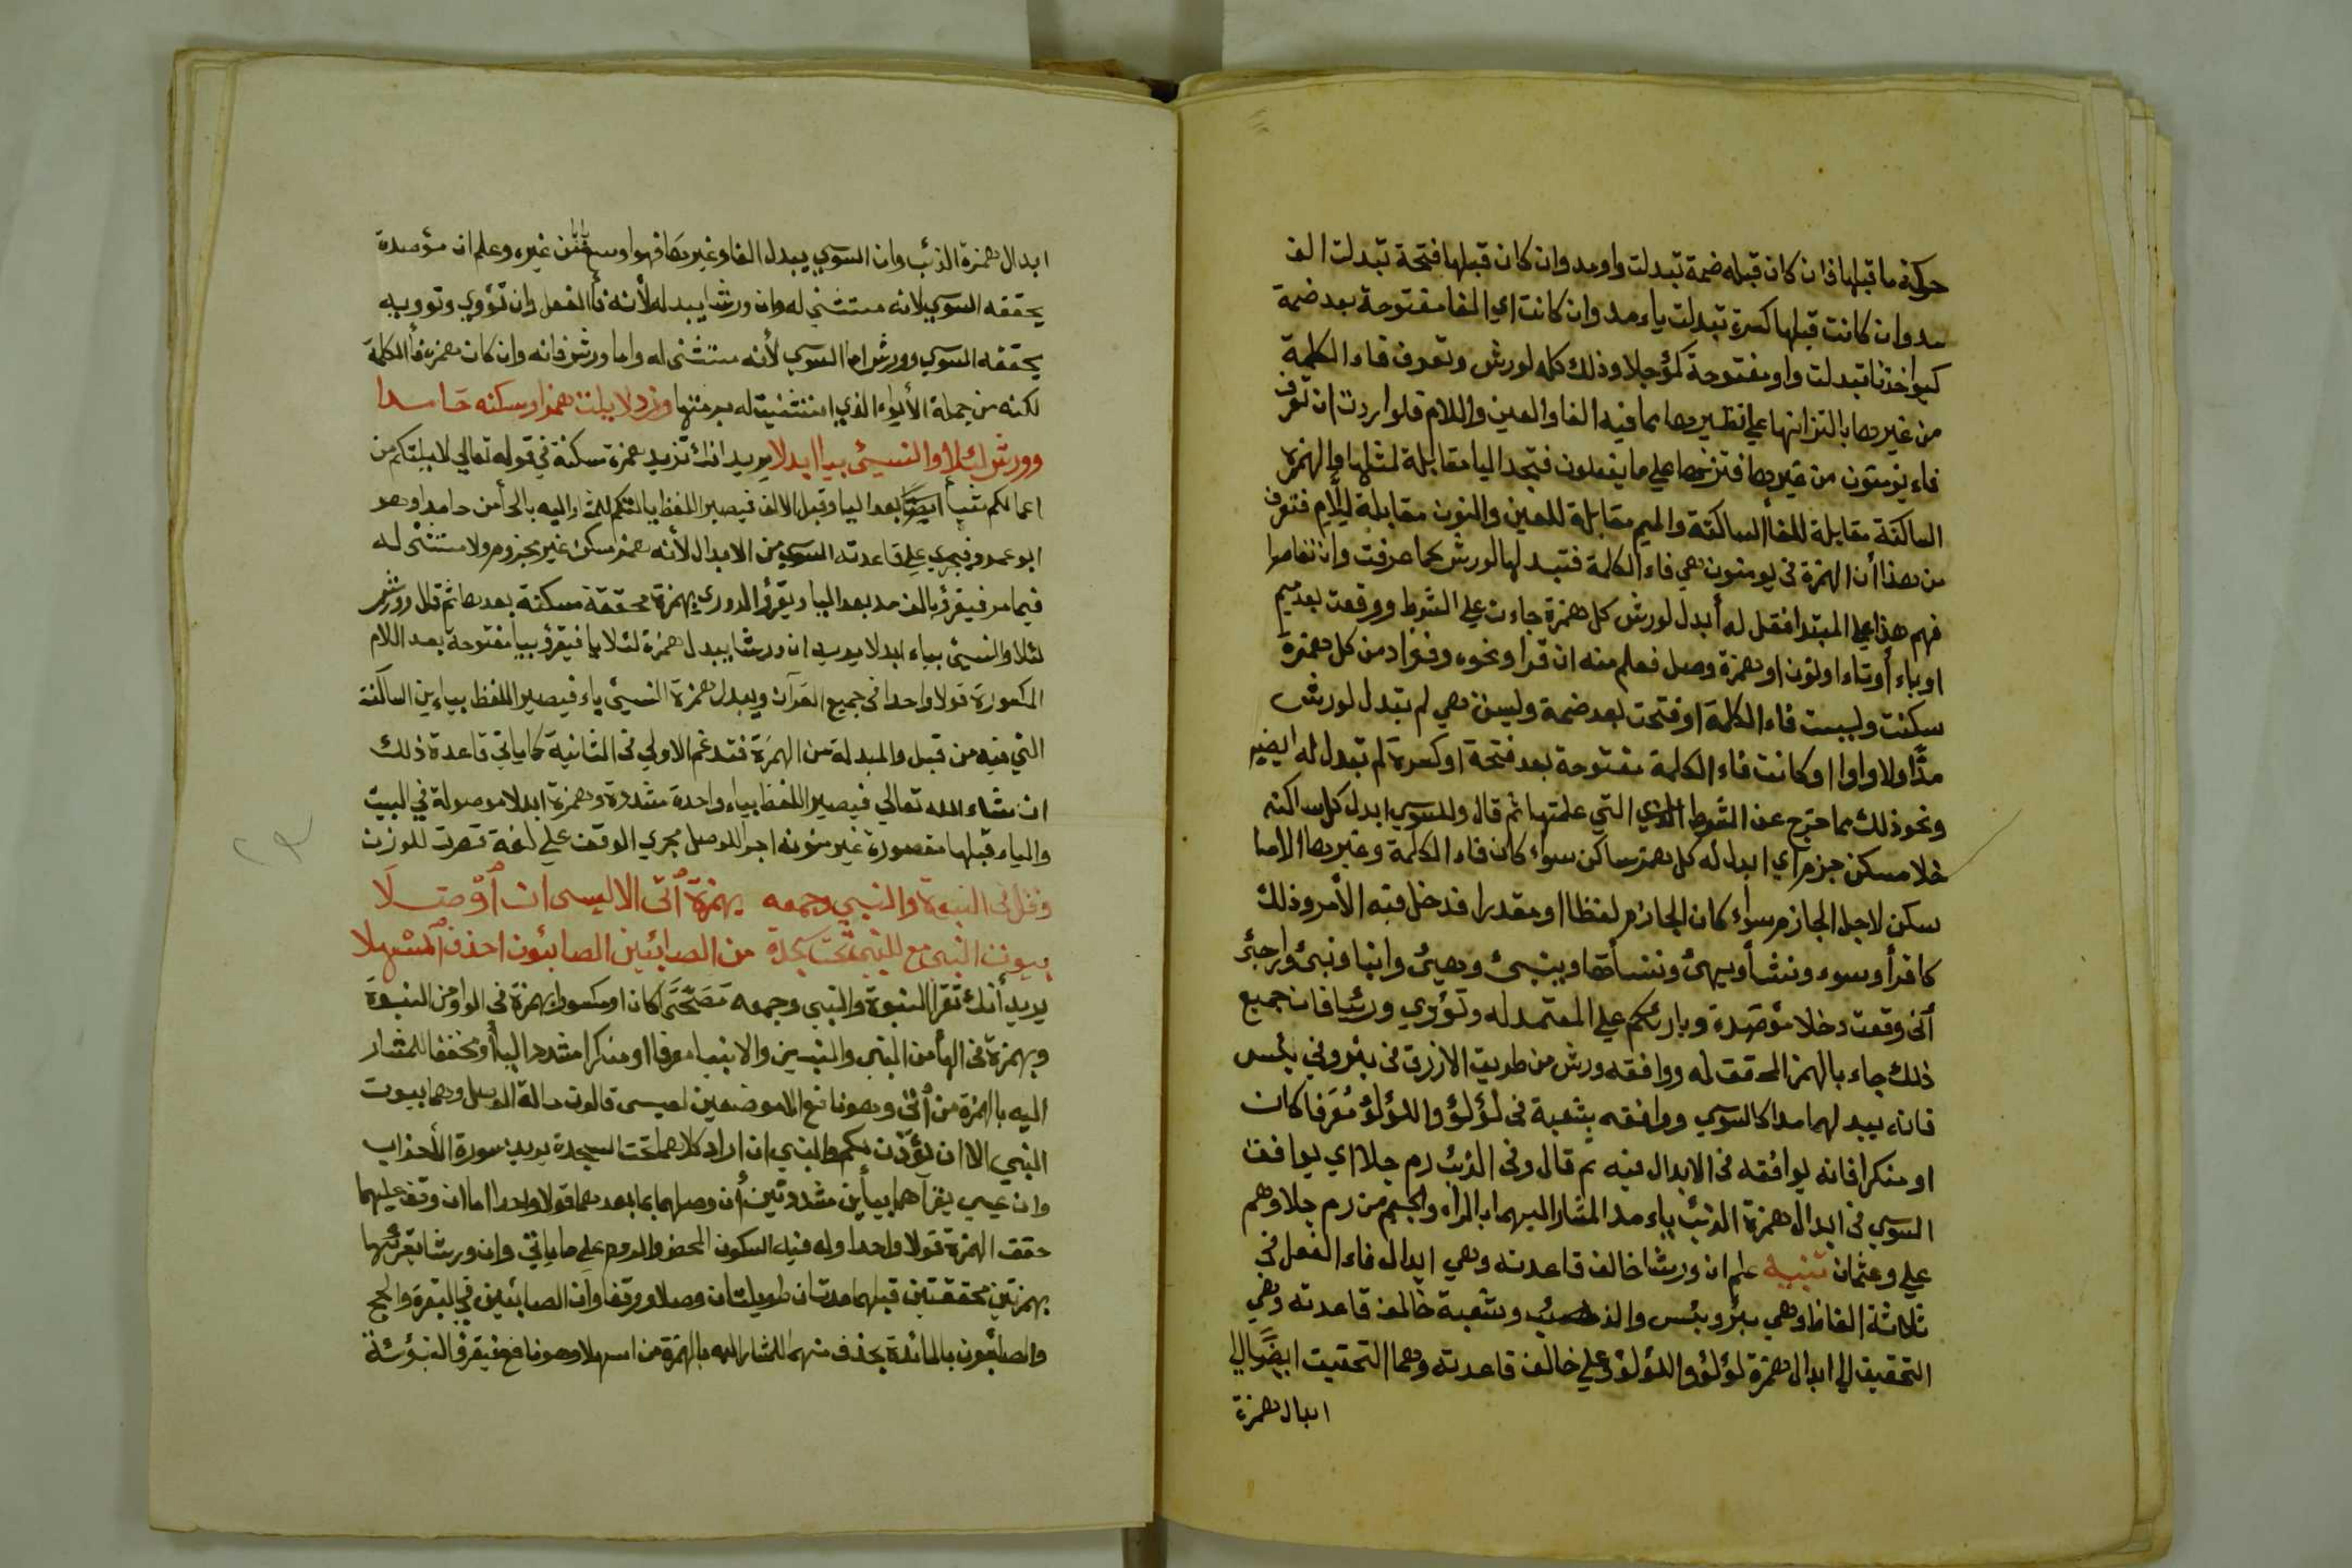 حركة ما قبلها فان كان قبله ضمة تبدلت واو مد وان كان قبلها فتحة تبدلت الف
مد وان كانت قبلها كسرة تبدلت ياء مد وان كانت اي الفا مفتوحة بعد ضمة
كيواخذنا تبدلت واو مفتوحة كمؤجلا وذلك كله لورش وتعرف فاء الكلمة
من غيرها بالتزانها علي نظيرها مما فيه الفا والعين واللام فلو اردت ان تعرف
فاء يؤمنون من غيرها فتزنها علي ما يفعلون فتجد اليا مقابلة لمثلها والهمزة
الساكنة مقابلة للفا الساكنة والميم مقابلة للعين والنون مقابلة للام فتعرف
من هذا أن الهمزة في يومنون هي فاء الكلمة فتبدلها لورش كما عرفت وان تعاصرا
فهم هذا علي المبتدا فقل له أبدل لورش كل همزة جاءت علي الشرط ووقعت بعد ميم
او ياء أو تاء او نون او همزة وصل فعلم منه ان قرا ونحوه وفؤاد من كل همزة
سكنت وليست فاء الكلمة او فتحت بعد ضمة وليست هي لم تبدل لورش
مدًّا ولا واوا او كانت فاء الكلمة مفتوحة بعد فتحة او كسرة لم تبدل له ايضا
ونحو ذلك مما خرج عن الشرط التي علمتها ثم قال وللسوسي ابدل كل ساكنه
خلا مسكن جزم اي ابدل له كل همز ساكن سواء كان فاء الكلمة وغيرها الا ما
سكن لاجل الجازم سواء كان الجازم لفظا او مقدرا فدخل فيه الأمر وذلك
كاقرأ وسوء ونشأ ويهئ وننسأها وينبئ وهيئ وانبا ونبئ وارجئ
أنى وقعت وخلا مؤصدة وبارئكم علي المعتمد له وتؤوي ورئيا فان جميع
ذلك جاء بالهمز المحقق له ووافقه ورش من طريق الازرق في بئر وفي بئس
فانه يبدلهما مدا كالسوسي ووافقه شعبة في لؤلؤ واللؤلؤ مُعَرفا كان
او منكرا فانه يوافقه في الابدال فيه ثم قال وفي الذئب رم جلا اي يوافق
السوسي في ابدال همزة الذئب ياء مد المشار اليهما بالراء والجيم من رم جلا وهم
علي وعثمان تنبيه علم ان ورشا خالف قاعدته وهي ابدال فاء الفعل في
ثلاثة الفاظ وهي بئر وبئس والذئب وشعبة خالف قاعدته وهي
التحقيق الي ابدال همزة لؤلؤ واللؤلؤ وعلي خالف قاعدته وهما التحقيق ايضًا الي
ابدال همزة
ابدال همزة الذئب وان السوسي يبدل الفا وغيرها فهو اوسع من غيره وعلم ان مؤصدة
يحققه السوسي لانه مستثني له وان ورشا يبدله لأنه فأ الفعل وان تؤوي وتوويه
يحققه السوسي وورش اما السوسي لأنه مستثنى له واما ورش فانه وان كان همزه فأ الكلمة
لكنه من جملة الأيواء الذي استثنيت له برمتها وزد لا يلت همزا وسكنه حَامدا
وورش لئلا والنسيئ بيا ابدلا يريد انك تزيد همزة سكنة في قوله تعالي لا يلتكم من
اعمالكم شيأ ايضًا بعد اليا وقبل الالف فيصير اللفظ يالتكم للمشار اليه بالحأ من حامدا وهو
ابو عمرو فيجري علي قاعدته السوسي من الابدال لأنه همز سكن غير مجزوم ولا مستثنى له
فيما مر فيقرؤ بالف مد بعد اليا ويقرؤ الدوري بهمزة محققة مسكنة بعدها ثم قال وورش
لئلا والنسيئ بياء ابدلا يريد ان ورشا يبدل همزة لئلا يا فيقرؤ بيا مفتوحة بعد اللام
المكسورة قولا واحدا في جميع القرآن ويبدل همزة النسيئ ياء فيصير اللفظ بياءين الساكنة
التي فيه من قبل والمبدلة من الهمزَة فتدغم الاولي في الثانية كما ياتي قاعدة ذلك
ان شاء الله تعالي فيصير اللفظ بياء واحدة مشددة وهمزة ابدلا موصولة في البيت
والياء قبلها مقصورة غير منونه اجرا للوصل مجري الوقف علي لغة قصرت للوزن
وقل في النبوة والنبي وجمعه بهمزة أتى الا ليسى ان أوْصَلَا
بيوت النبي مع للنبي تحت سجدة من الصابئين الصابئون احذف المسْهلا
يريد أنك تقرأ النبوة والنبي وجمعه مُصَحَّحًا كان او مكسورا بهمزة في الواو من النبوة
وبهمزة في اليا من النبي والنبيين والانبيا معرفا او منكرا مشدد اليأ او مخففا للمشار
اليه بالهمزة من أتى وهو نافع الا موضعين لعيسى قالون حالة الوصل وهما بيوت
النبي الا ان يؤذن لكم وللنبي ان اراد كلاهما تحت السجدة يريد سورة الأحزاب
وان عيسي يقرأهما بيأين مشددتين أن وصلهما بما بعدهما قولا واحدا اما ان وقف عليهما
حقق الهمزة قولا واحدا وله فيه السكون المحض والروم علي ما ياتي وان ورشا يقرئها
بهمزتين محققتين قبلهما مدتان طويلتان وصلا ووقفا وان الصابئين في البقرة والحج
والصابئون بالمائدة بحذف منهما للمشار اليه بالهمزة من اسهلا وهو نافع فيقرؤ النبوئة